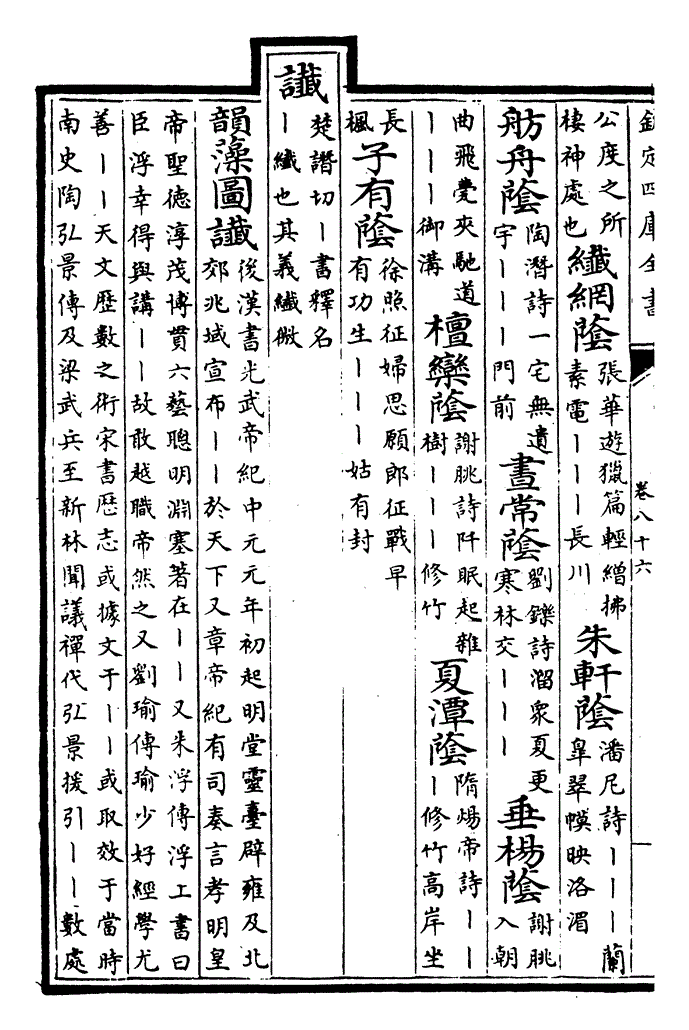 欽定四庫全書
卷八十六
公度之所
棲神處也
纖網蔭
張華遊獵篇輕繒拂
素電丨丨丨長川
朱軒蔭
潘尼詩丨丨丨蘭
臯翠幙映洛湄
舫舟蔭
陶潛詩一宅無遺
宇丨丨丨門前
晝常蔭
劉鑠詩溜衆夏更
寒林交丨丨丨
垂楊蔭
謝朓
入朝
曲飛甍夾馳道
丨丨丨御溝
檀欒蔭
謝朓詩阡眠起雜
樹丨丨丨修竹
夏潭蔭
隋煬帝詩丨丨
丨修竹高岸坐
長
楓
子有蔭
徐照征婦思願郎征戰早
有功生丨丨丨姑有封
讖
楚譖切丨書釋名
丨纖也其義纖微
韻藻圖讖
後漢書光武帝紀中元元年初起明堂靈臺辟雍及北
郊兆域宣布丨丨於天下又章帝紀有司奏言孝明皇
帝聖德淳茂博貫六藝聰明淵塞著在丨丨又朱浮傳浮上書曰
臣浮幸得與講丨丨故敢越職帝然之又劉瑜傳瑜少好經學尤
善丨丨天文歷數之術宋書歷志或據文于丨丨或取效于當時
南史陶弘景傳及梁武兵至新林聞議禪代弘景援引丨丨數處